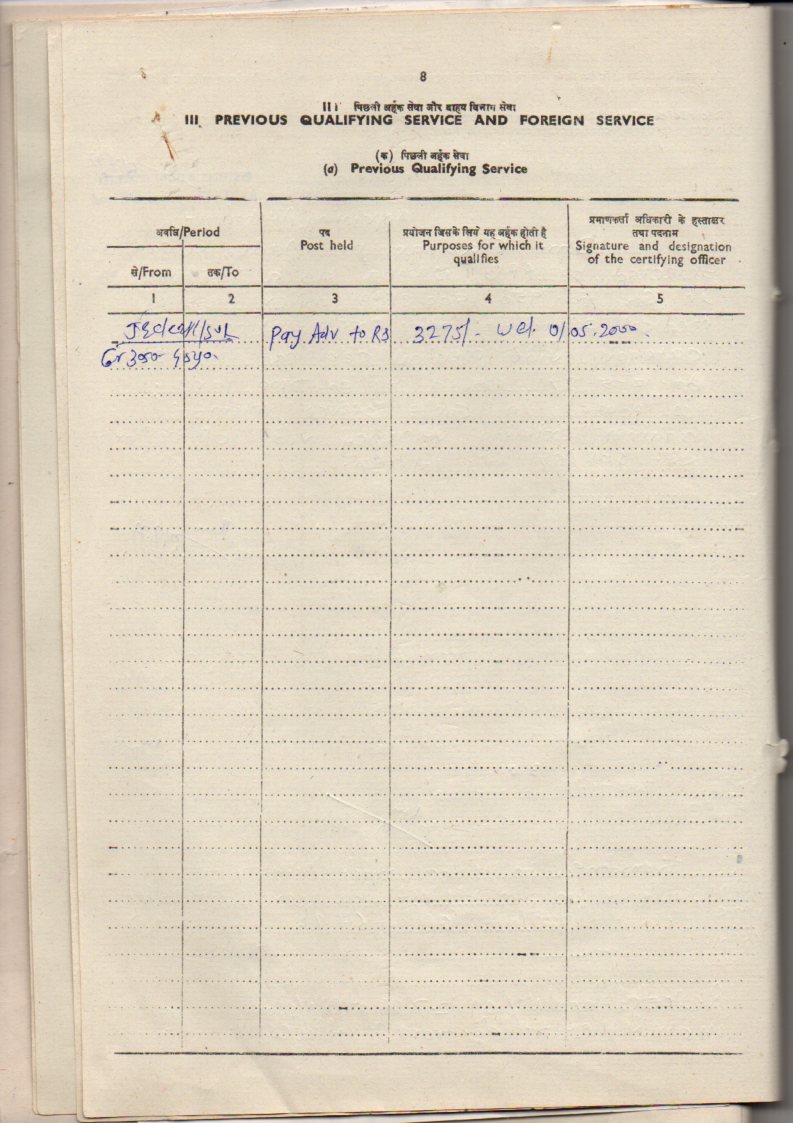 8
III पिछली अर्हक सेवा और बाह्य विभाग सेवा
III. PREVIOUS QUALIFYING SERVICE AND FOREIGN SERVICE
(क) पिछली अर्हक सेवा
(a) Previous Qualifying Service
अवधि/Period
से/From
तक/To
पद
Post held
प्रयोजन जिसके लिये यह अर्हक होती है
Purposes for which it
qualifies
प्रमाणकर्ता अधिकारी के हस्ताक्षर
तथा पदनाम
Signature and designation
of the certifying officer
1 2 3 4 5
Pay Adv to Rs 3275/- 01.05.2000.
Gr 3050 4590.